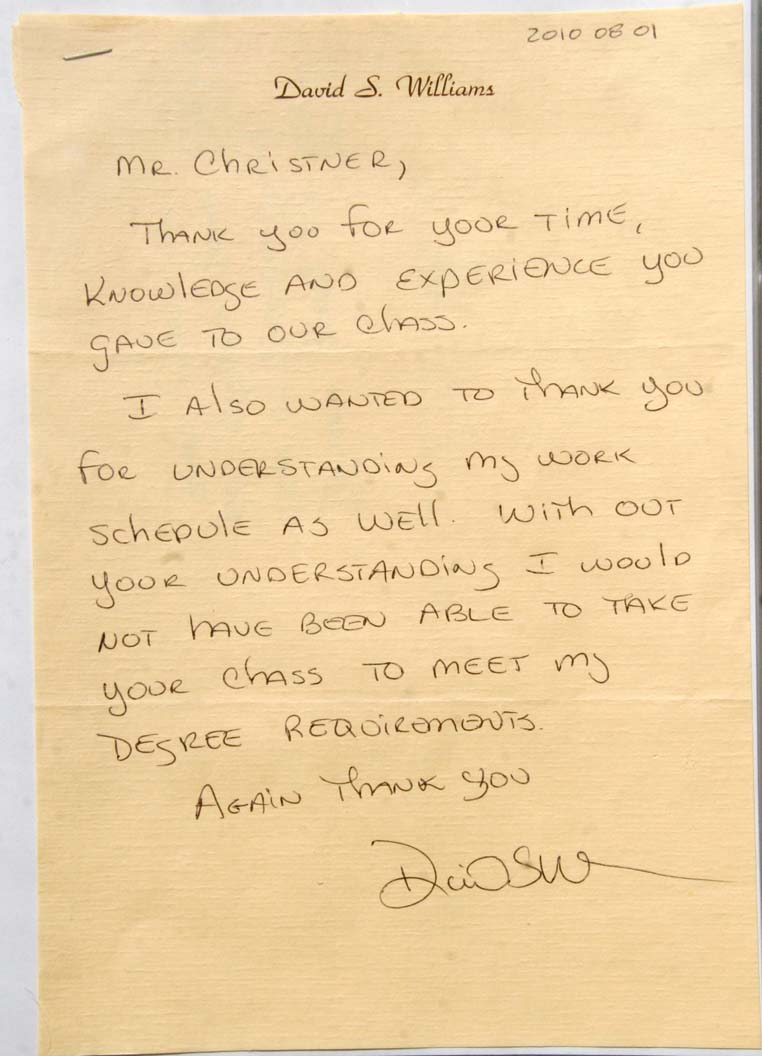 2010 08 01
David S. Williams
Mr. Christner,
Thank you for your time,
knowledge and experience you
gave to our class.
I also wanted to thank you
for understanding my work
schedule as well. With out
your understanding I would
not have been able to take
your class to meet my
degree requirements.
Again thank you